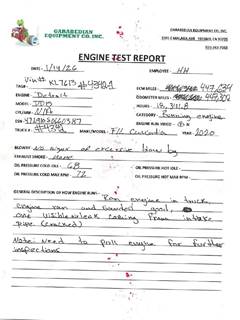 GARABEDIAN
EQUIPMENT CO. INC.
GARABEDIAN EQUIPMENT CO. INC.
ENGINE TEST REPORT
DATE: 1/14/26
EMPLOYEE: HH
Vin# KL7613
TAG# #4342-1
ECM MILES: 447,634
ENGINE: Detroit
ODOMETER MILES:
MODEL: DD15
HOURS:
CPL/AR: N/A
CATEGORY: Running engine
SN:
ENGINE RUN VIDEO:
TRUCK #:
MAKE/MODEL: F/L Cascadia
YEAR: 2020
BLOWBY: No signs of excessive blow by
EXHAUST SMOKE: None
OIL PRESSURE COLD IDLE: 68
OIL PRESSURE HOT IDLE: -
OIL PRESSURE COLD MAX RPM: 72
OIL PRESSURE HOT MAX RPM: -
GENERAL DESCRIPTION OF HOW ENGINE RUNS: Ran engine in truck,
engine ran and sounded good,
one visible leak coming from intake
pipe (cracked)
Note: Need to pull engine for further
inspections